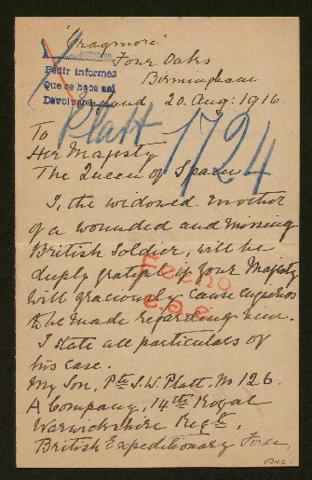 "Cragmore"
Four Oaks
Pedir informes
Birmingham
Que se hace asi
Devolver
England 20. Aug: 1916
Platt 1724
To
Her Majesty
The Queen of Spain
I, the widowed mother
of a wounded and missing
British Soldier, will be
deeply grateful if your Majesty
will graciously cause enquiries
to be made regarding him.
Fecho
I state all particulars of
his case.
My Son, Pte S. W. Platt. No 126.
A Company, 14th Royal
Warwickshire Regt.
British Expeditionary Force,